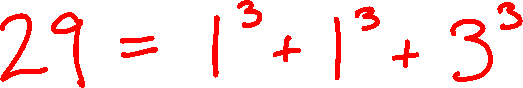 29 = 1³ + 1³ + 3³